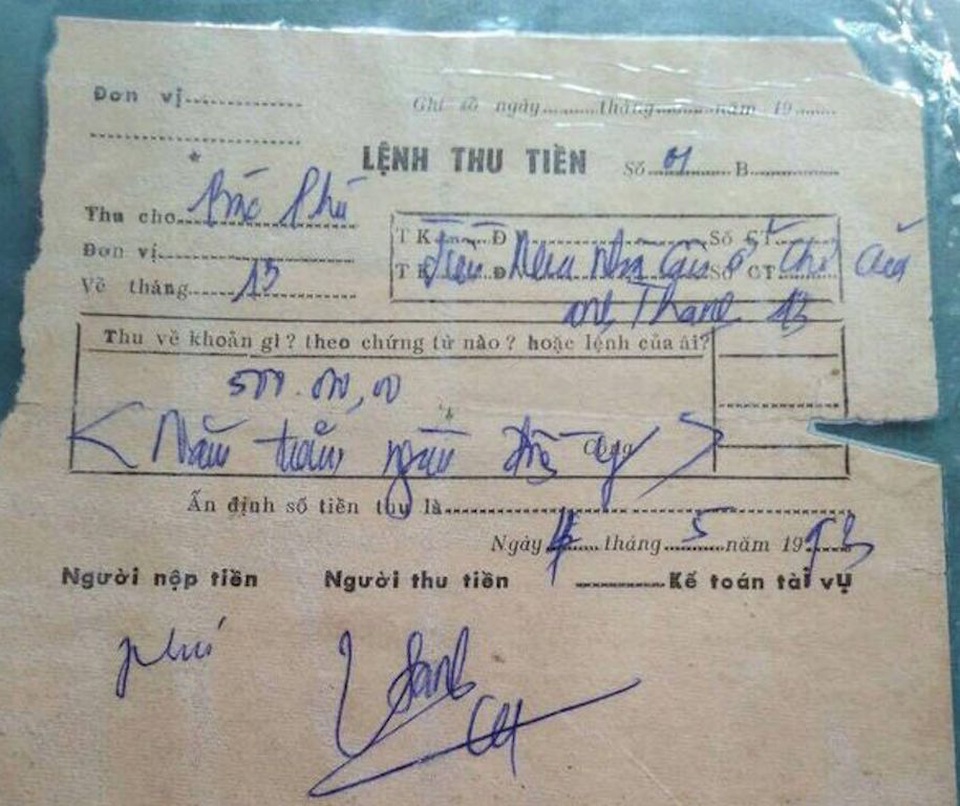 Đơn vị............ Ghi sổ ngày..........tháng..........năm 19.......
LỆNH THU TIỀN Số 01 B..............
Thu cho Bác Phú
T K.........Đ..............Số CT.........
Đơn vị..............
Tiền Mua nhà ở Chị
T K.........Đ..............Số CT.........
Về tháng 13
anh Thanh 13
Thu về khoản gì? theo chứng từ nào? hoặc lệnh của ai?
500.000,00
Năm trăm ngàn đồng
Cộng
Ấn định số tiền thu là..............
Ngày 4 tháng 5 năm 1993
Người nộp tiền Người thu tiền Kế toán tài vụ
phú